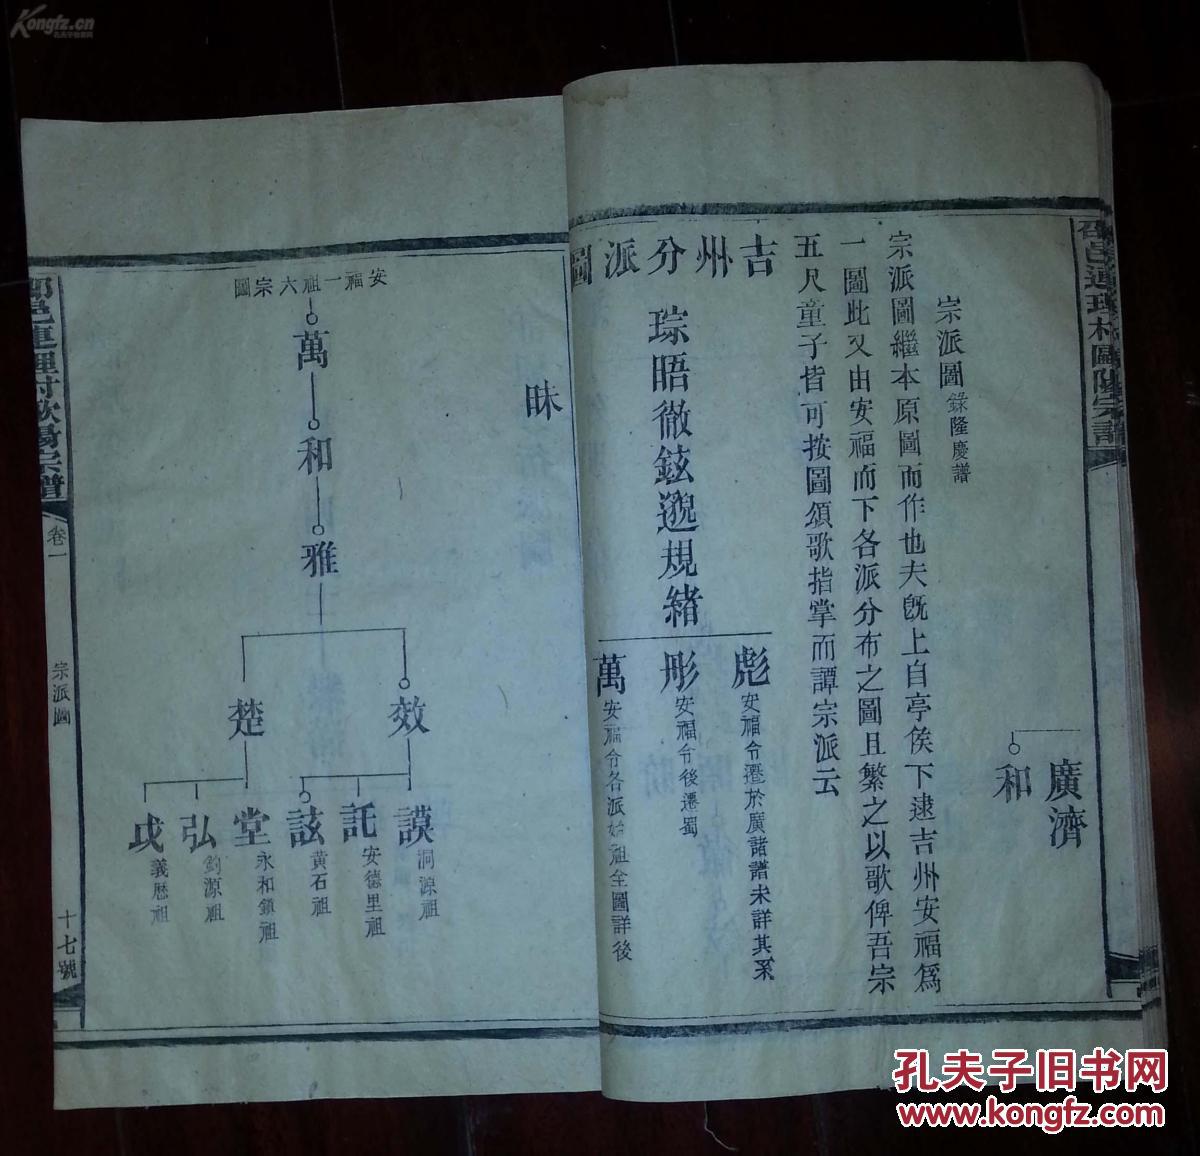 Kongfz.cn
孔夫子旧书网
廣濟
和
宗派圖錄隆慶譜
宗派圖繼本原圖而作也夫旣上自亭侯下逮吉州安福爲
一圖此又由安福而下各派分布之圖且繁之以歌俾吾宗
五尺童子皆可按圖頌歌指掌而譚宗派云
吉州分派圖
琮晤徹鉉邈規緒
彪安福令遷於廣諸譜未詳其系
彤安福令後遷蜀
萬安福令各派始祖全圖詳後
昧
安福一祖六宗圖
萬
和
雅
效
楚
謨洞源祖
託安德里祖
詃黃石祖
堂永和鎮祖
弘鈞源祖
戉義歷祖
卷一
宗派圖
十七號
孔夫子旧书网
www.kongfz.com